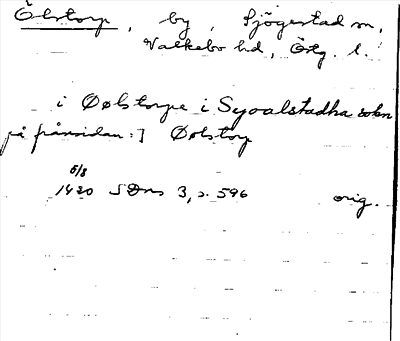 Ölstorp, by, Sjögestad sn,
Valkebo hd, Östg. l.
i Øølstorpe i Syoalstadha sokn
på frånsidan:] Øolstorp
5/3
1420 SDns 3, s. 596 orig.